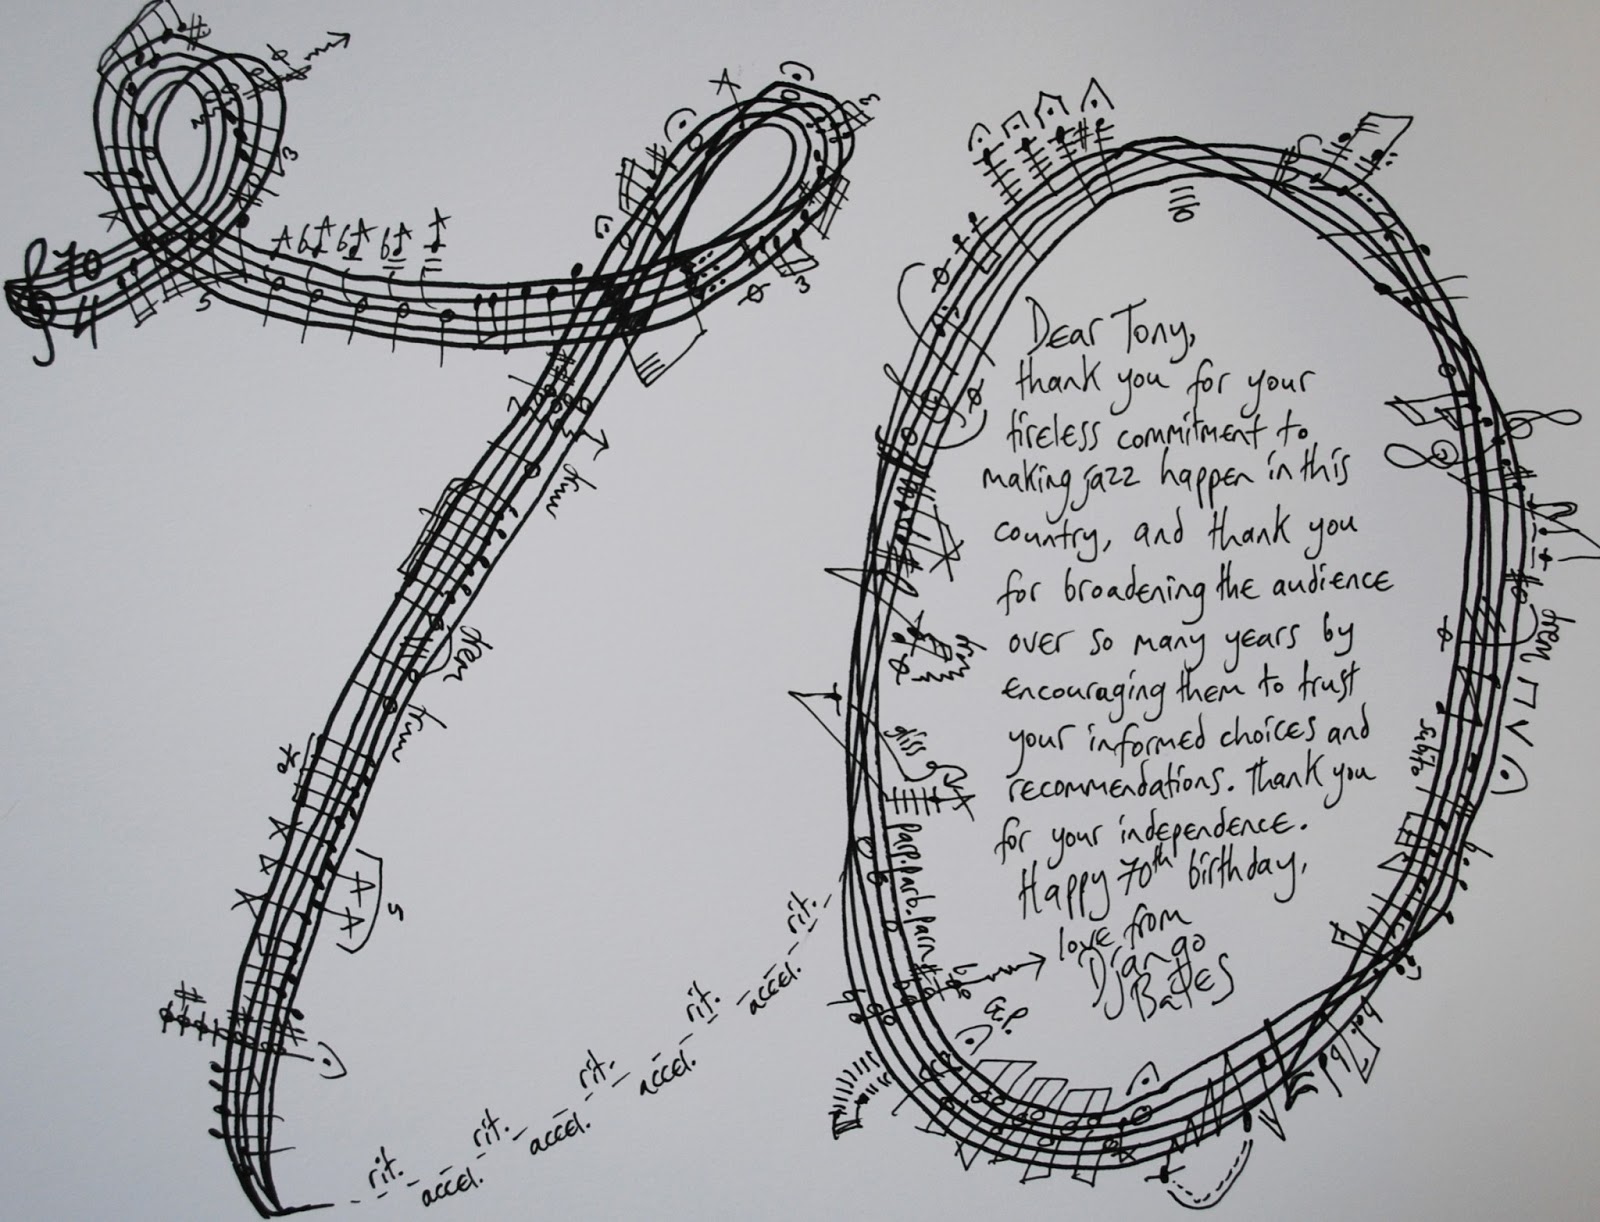 70
4
3
5
3
3
5
rit.
accel.
rit.
accel.
rit.
accel.
rit.
accel.
rit.
Dear Tony,
thank you for your
tireless commitment to
making jazz happen in this
country, and thank you
for broadening the audience
over so many years by
encouraging them to trust
your informed choices and
recommendations. Thank you
for your independence.
Happy 70th birthday,
love from
Django
Bates
gliss
parp.parb.parn
G.P.
subito